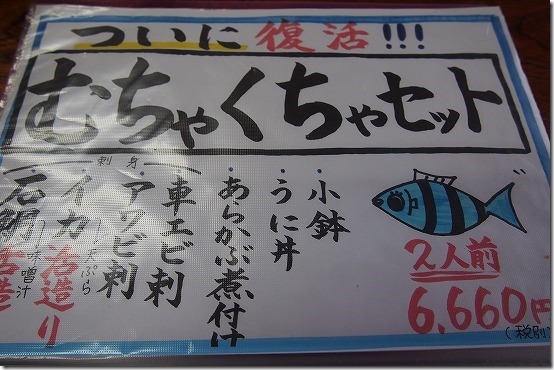 ついに復活!!!
むちゃくちゃセット
2人前
6,660円
(税別)
小鉢
うに丼
あらかぶ煮付け
刺身
車エビ刺
アワビ刺
イカ活造り
天ぷら
石鯛活造
味噌汁